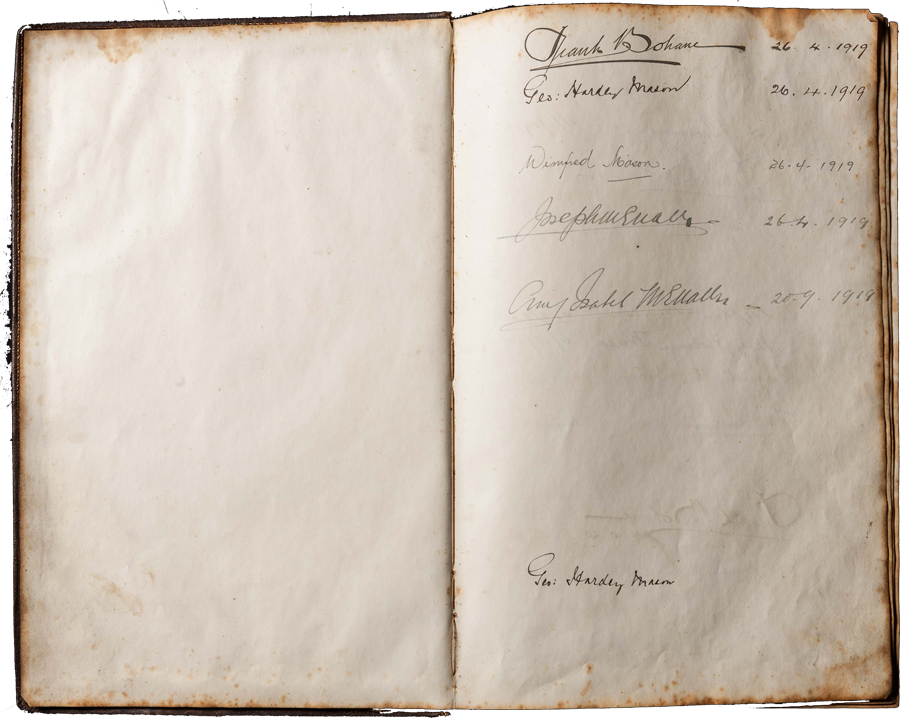 Frank Bohane 26.4.1919
Geo: Hardey Mason 26.4.1919
Winifred Mason. 26.4.1919
Joseph 26.4.1919
Amy Isabel 1919
Geo: Hardey Mason